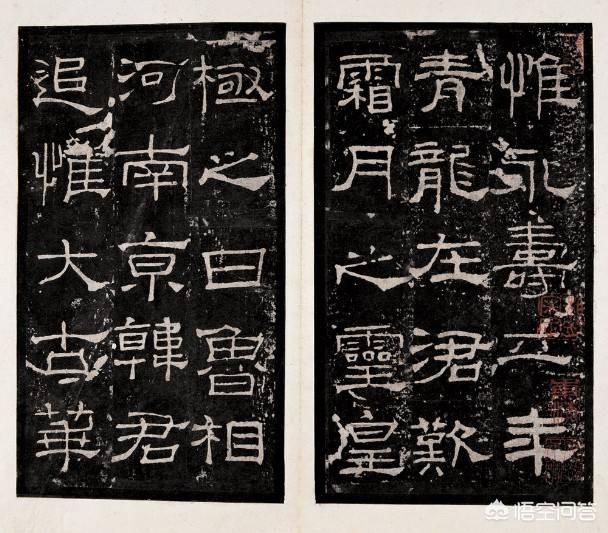 惟永壽二年
青龍在涒歎
霜月之靈皇
極之日魯相
河南京韓君
追惟大古華
悟空问答